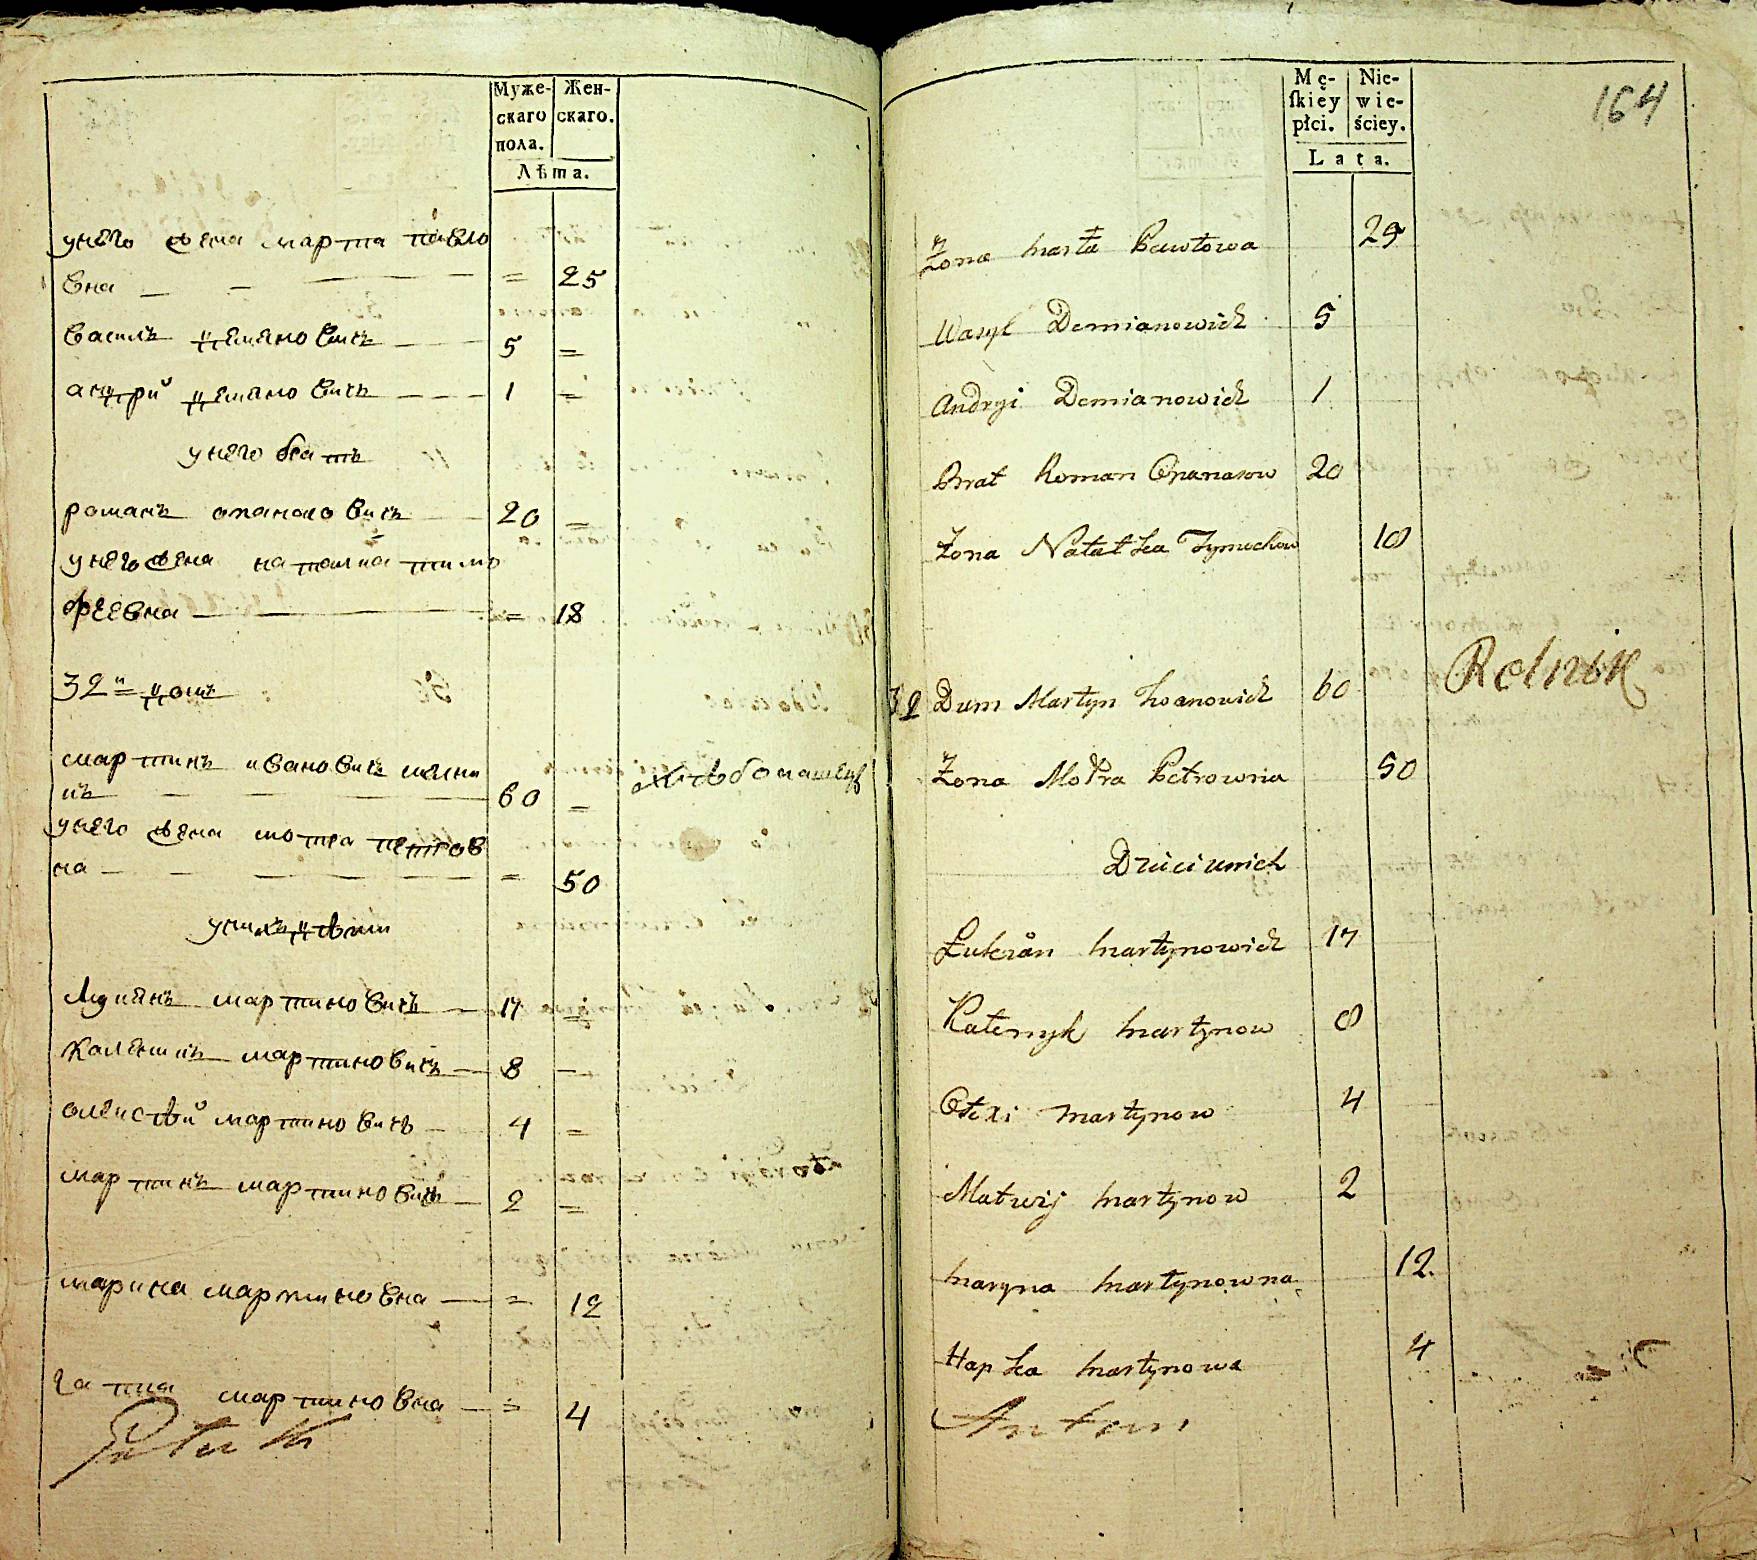 Муже-
скаго
пола.
Жен-
скаго.
Лѣта.
унего жена марта павло
вна — — — = 25
василь демяновичъ — — 5 =
андрій демяновичъ — — — 1 =
унего братъ
романъ опанасовичъ — 20 =
унего жена наталка тимо
фЕевна — = 18
32й домъ
мартинъ ивановичъ
— — — 60 =
унего жена мотра петров
на — — — — — = 50
унихъ дѣти
лукянъ мартиновичъ — 17 =
мартиновичъ — 8 —
олексѣй мартиновичъ — 4 =
мартинъ мартиновичъ — 2 =
марина мартиновна — = 12
гапка мартиновна — = 4
164
Mę-
ſkiey
płci.
Nie-
wie-
ściey.
Lata.
Żona Marta Pawłowa 25
Wasyl Demianowicz 5
Andryi Demianowicz 1
Brat Roman Opanasow 20
Żona Natałka Tymochow 18
32 Dum Martyn Iwanowicz 60 Rolnik
Żona Motra Petrowna 50
Dzieci unich
Łukian Martynowicz 17
Martynow 8
Ołexi Martynow 4
Matwij Martynow 2
Maryna Martynowna 12.
Hapka Martynowa 4